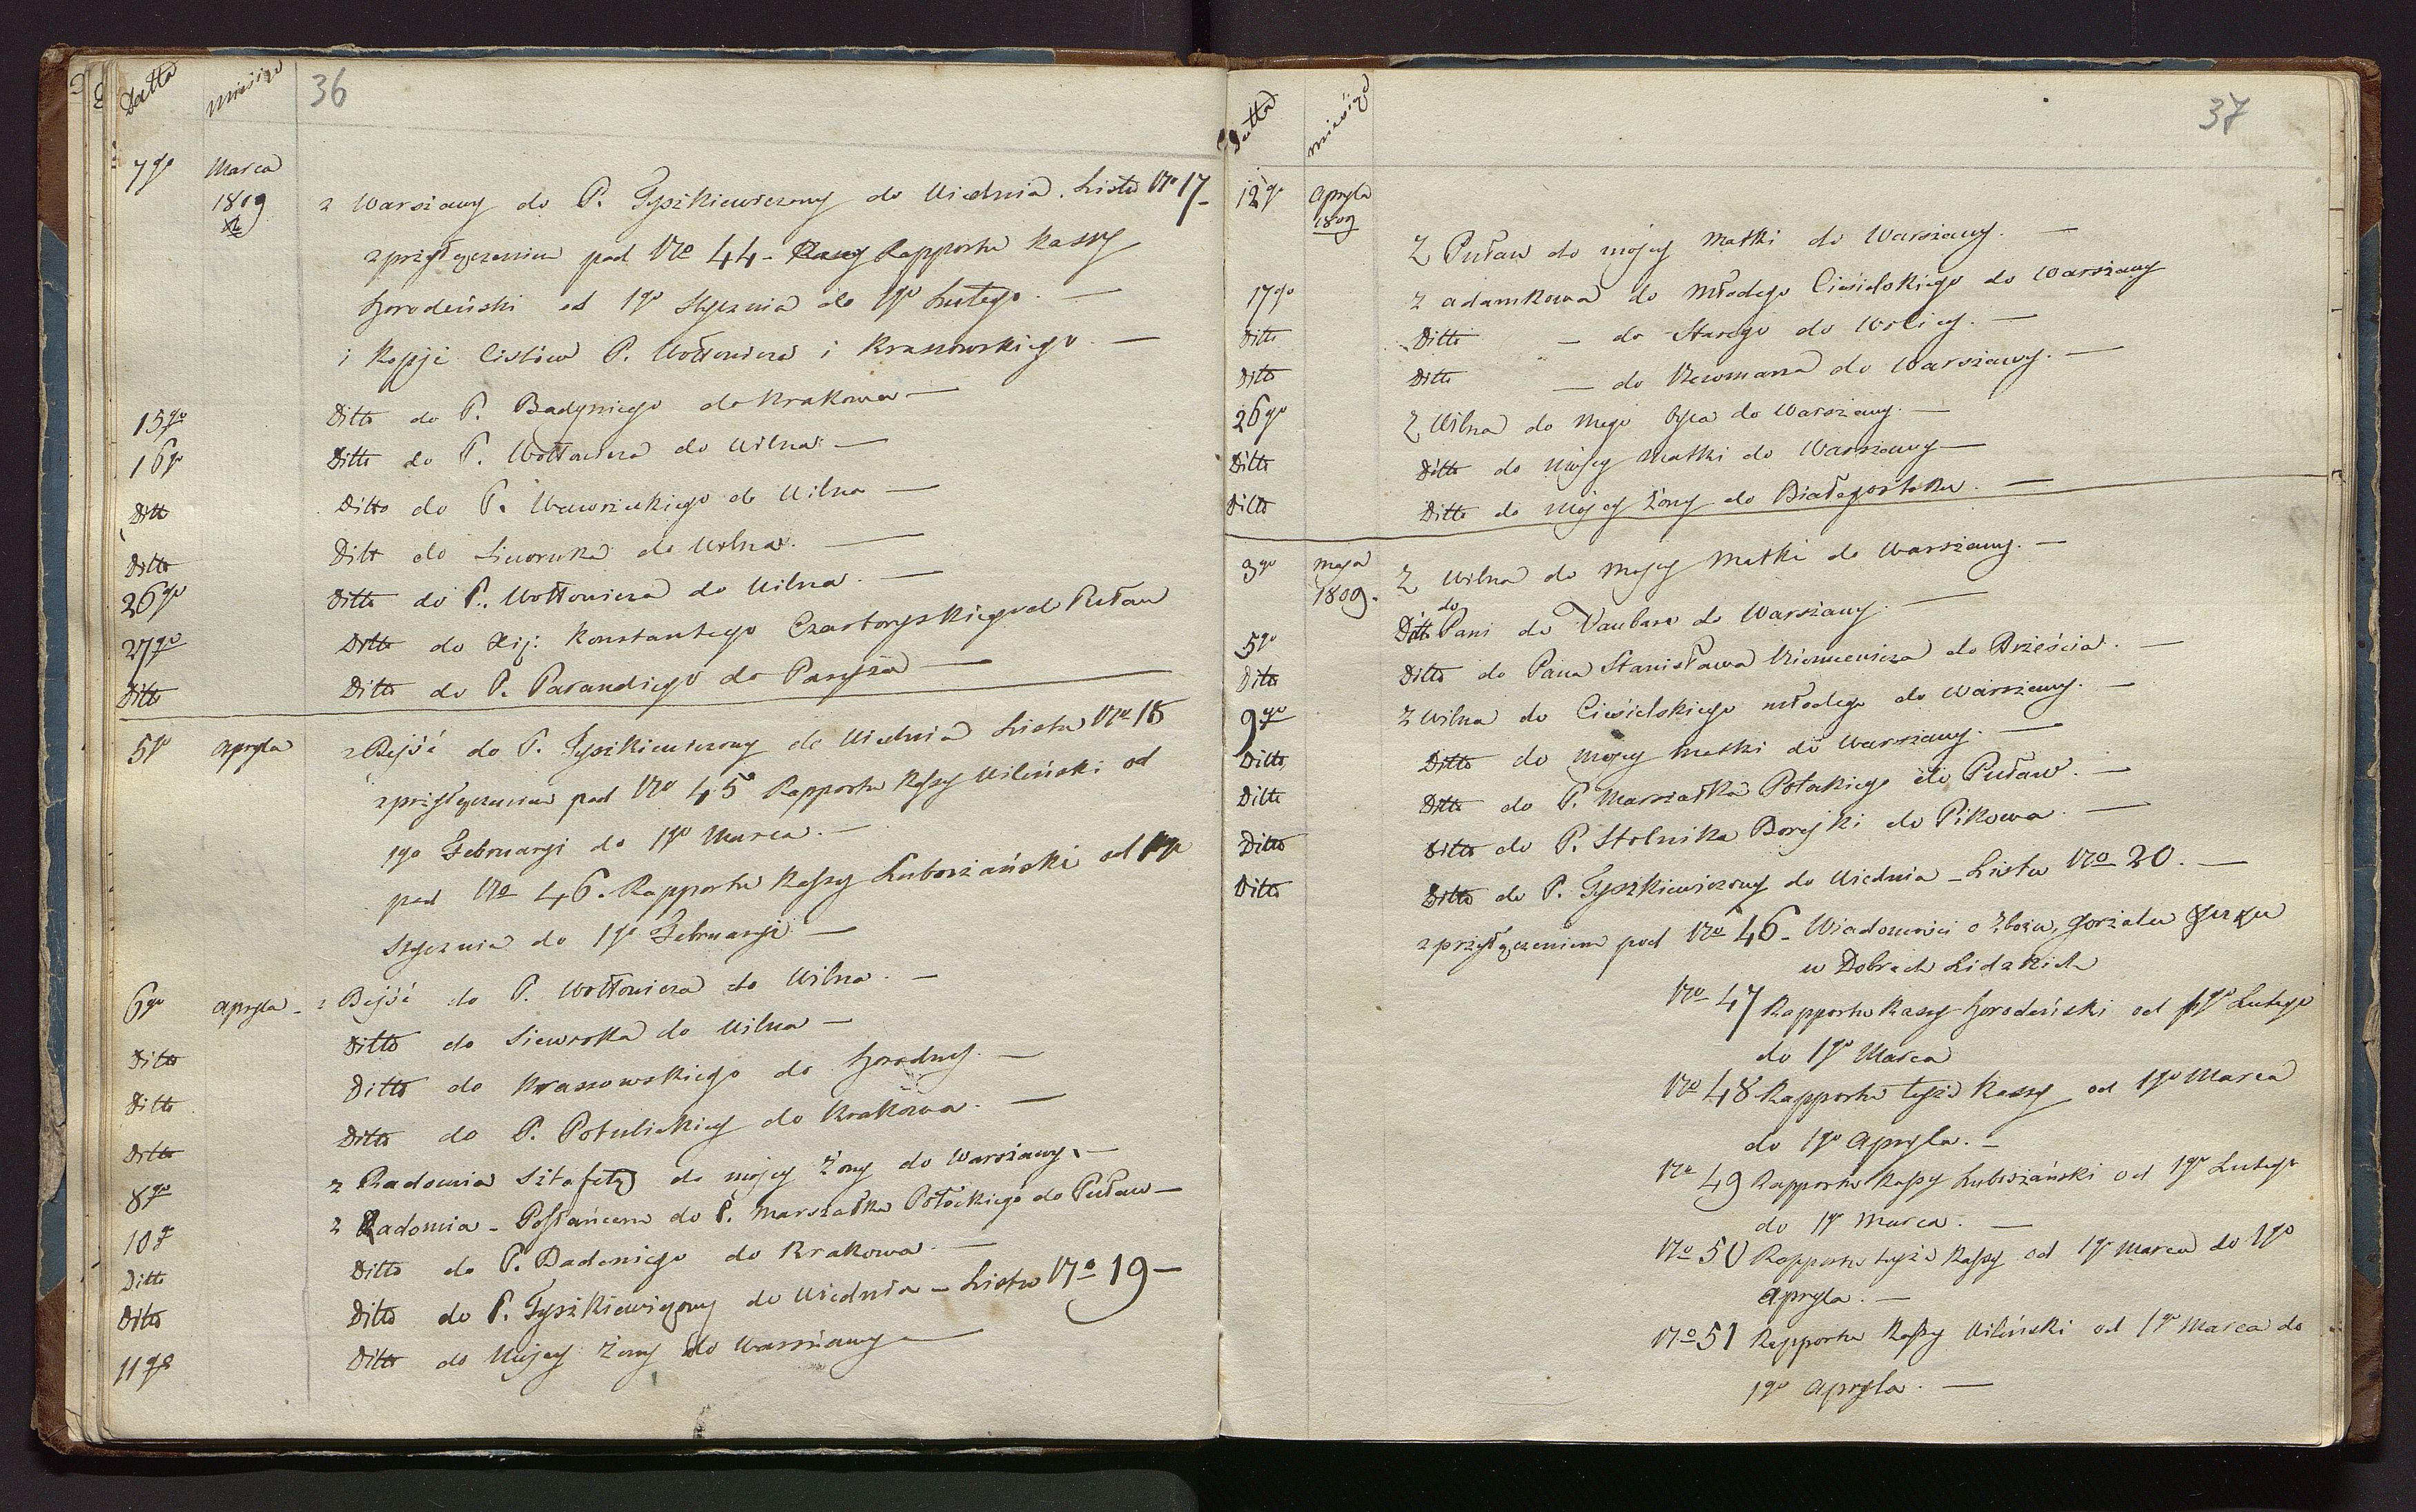 Datta miesiąc 36
7go Marca
1809 z Warszawy do P. Tyszkiewiczowy do Wiednia. Listu No 17 -
z przyłączeniem pod No 44 - Rapportu kassy
Horodeński od 1go Stycznia do 1go Lutego. —
i kopji listów P. Wołłowicza i Krassowskiego. —
15go Ditto do P. Badyniego do Krakowa —
16go Ditto do P. Wołłowicza do Wilna. —
Ditto Ditto do P. Wawrzeckiego do Wilna —
Ditto Ditt do Siworuka do Wilna. —
26go Ditto do P. Wołłowicza do Wilna. —
27go Ditto do Xij: Konstantego Czartoryskiego do Puław
Ditto Ditto do P. Parandiego do Paryża —
5go Apryla z Bejść do P. Tyszkiewiczowy do Wiednia Listu No 18
z przyłączeniem pod No 45 Rapportu Kassy Wileński od
1go Februaryi do 1go Marca. —
pod No 46. Rapportu Kassy Luboszański od 1go
Stycznia do 1go Februaryi —
6go Apryla - z Bejść do P. Wołłowicza do Wilna. —
Ditto Ditto do Siewruka do Wilna —
Ditto Ditto do Krassowskiego do Horodny. —
Ditto Ditto do P. Potulickiey do Krakowa. —
8go z Radomia Sztafetą do mojey żony do Warszawy. —
10go z Radomia - Posłańcem do P. Marszałka Potockiego do Puław —
Ditto Ditto do P. Badeniego do Krakowa. —
Ditto Ditto do P. Tyszkiewiczowy do Wiednia - Listu No 19 —
11go Ditto do Mojey żony do Warszawy —
Datta miesiąc 37
12go Apryla
1809
Z Puław do mojey Matki do Warszawy. —
17go z Adamkowa do Młodego Ciesielskiego do Warszawy
Ditto Ditto — do Starego do Wolicy. —
Ditto Ditto — do Neumana do Warszawy. —
26go Z Wilna do Mego Oyca do Warszawy. —
Ditto Ditto do Mojey Matki do Warszawy —
Ditto Ditto do Mojey żony do Białegostoku. —
3go Maja
1809. Z Wilna do Mojey Matki do Warszawy. —
5go Ditt do Pani de Vauban do Warszawy. —
Ditto Ditto do Pana Stanisława Niemcewicza do Brześcia. —
9go z Wilna do Ciesielskiego młodego do Warszawy. —
Ditto Ditto do Mojey Matki do Warszawy. —
Ditto Ditto do P. Marszałka Potockiego do Puław. —
Ditto Ditto do P. Stolnika Borejki do Pikowa. —
Ditto Ditto do P. Tyszkiewiczowy do Wiednia - Listu No 20. —
z przyłączeniem pod No 46 - Wiadomości o Zbożu, gorzałce
w Dobrach Lidzkich
No 47 Rapportu Kassy Horodeński od 1go Lutego
do 1go Marca
No 48 Rapportu teyże Kassy od 1go Marca
do 1go Apryla. —
No 49 Rapportu Kassy Luboszański od 1go Lutego
do 1go Marca. —
No 50 Rapportu teyże Kassy od 1go Marca do 1go
Apryla. —
No 51 Rapportu Kassy Wileński od 1go Marca do
1go Apryla. —